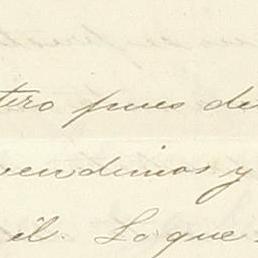 tero pues de
vendimos y
él. Lo que